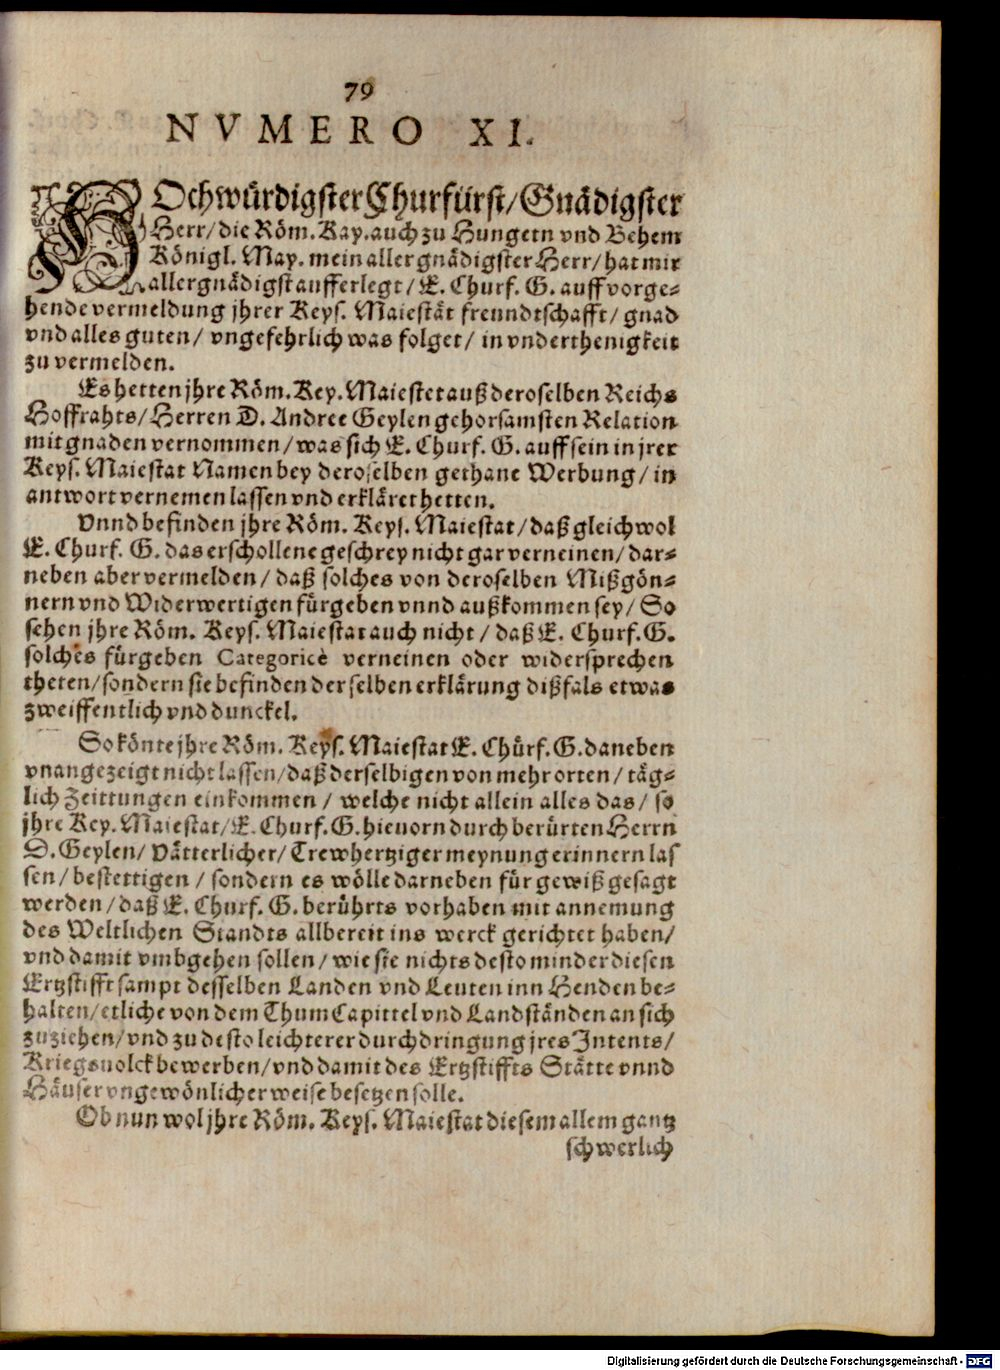 79
NVMERO XI.
HOchwürdigster Churfürst/ Gnädigster
Herr/ die Röm. Kay. auch zu Hungern vnd Behem
Königl. May. mein allergnädigster Herr/ hat mir
allergnädigst aufferlegt/ E. Churf. G. auff vorge-
hende vermeldung jhrer Keys. Maiestät freundtschafft/ gnad
vnd alles guten/ vngefehrlich was folget/ in vnderthenigkeit
zu vermelden.
Es hetten jhre Röm. Key. Maiestet auß deroselben Reichs
Hoffrahts/ Herren D. Andree Geylen gehorsamsten Relation
mit gnaden vernommen/ was sich E. Churf. G. auff sein in jrer
Keys. Maiestat Namen bey deroselben gethane Werbung/ in
antwort vernemen lassen vnd erkläret hetten.
Vnnd befinden jhre Röm. Keys. Maiestat/ daß gleichwol
E. Churf. G. das erschollene geschrey nicht gar verneinen/ dar-
neben aber vermelden/ daß solches von deroselben Mißgön-
nern vnd Widerwertigen fürgeben vnnd außkommen sey/ So
sehen jhre Röm. Keys. Maiestat auch nicht/ daß E. Churf. G.
solches fürgeben Categoricè verneinen oder widersprechen
theten/ sondern sie befinden derselben erklärung dißfals etwas
zweiffentlich vnd dunckel.
So könte jhre Röm. Keys. Maiestat E. Chürf. G. daneben
vnangezeigt nicht lassen/ daß derselbigen von mehr orten/ täg-
lich Zeittungen einkommen/ welche nicht allein alles das/ so
jhre Key. Maiestat/ E. Churf. G. hieuorn durch berürten Herrn
D. Geylen/ Vätterlicher/ Trewhertziger meynung erinnern las
sen/ bestettigen/ sondern es wölle darneben für gewiß gesagt
werden/ daß E. Churf. G. berührts vorhaben mit annemung
des Weltlichen Standts allbereit ins werck gerichtet haben/
vnd damit vmbgehen sollen/ wie sie nichts desto minder diesen
Ertzstifft sampt desselben Landen vnd Leuten inn Henden be-
halten/ etliche von dem Thum Capittel vnd Landständen an sich
zuziehen/ vnd zu desto leichterer durchdringung jres Intents/
Kriegsuolck bewerben/ vnd damit des Ertzstiffts Stätte vnnd
Häuser vngewönlicher weise besetzen solle.
Ob nun wol jhre Röm. Keys. Maiestat diesem allem gantz
schwerlich
Digitalisierung gefördert durch die Deutsche Forschungsgemeinschaft - DFG